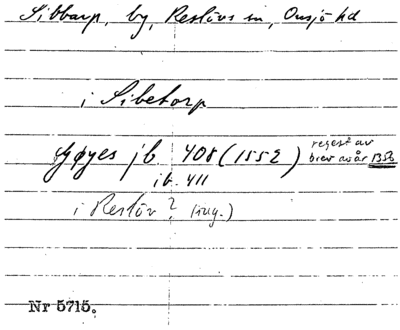 Sibbarp, by, Reslövs sn, Onsjö hd
i Sibetorp
Gøyes jb 408 (1552) regest av
brev av år 1350
ib. 411
i Reslöv? (ing.)
Nr 5715.